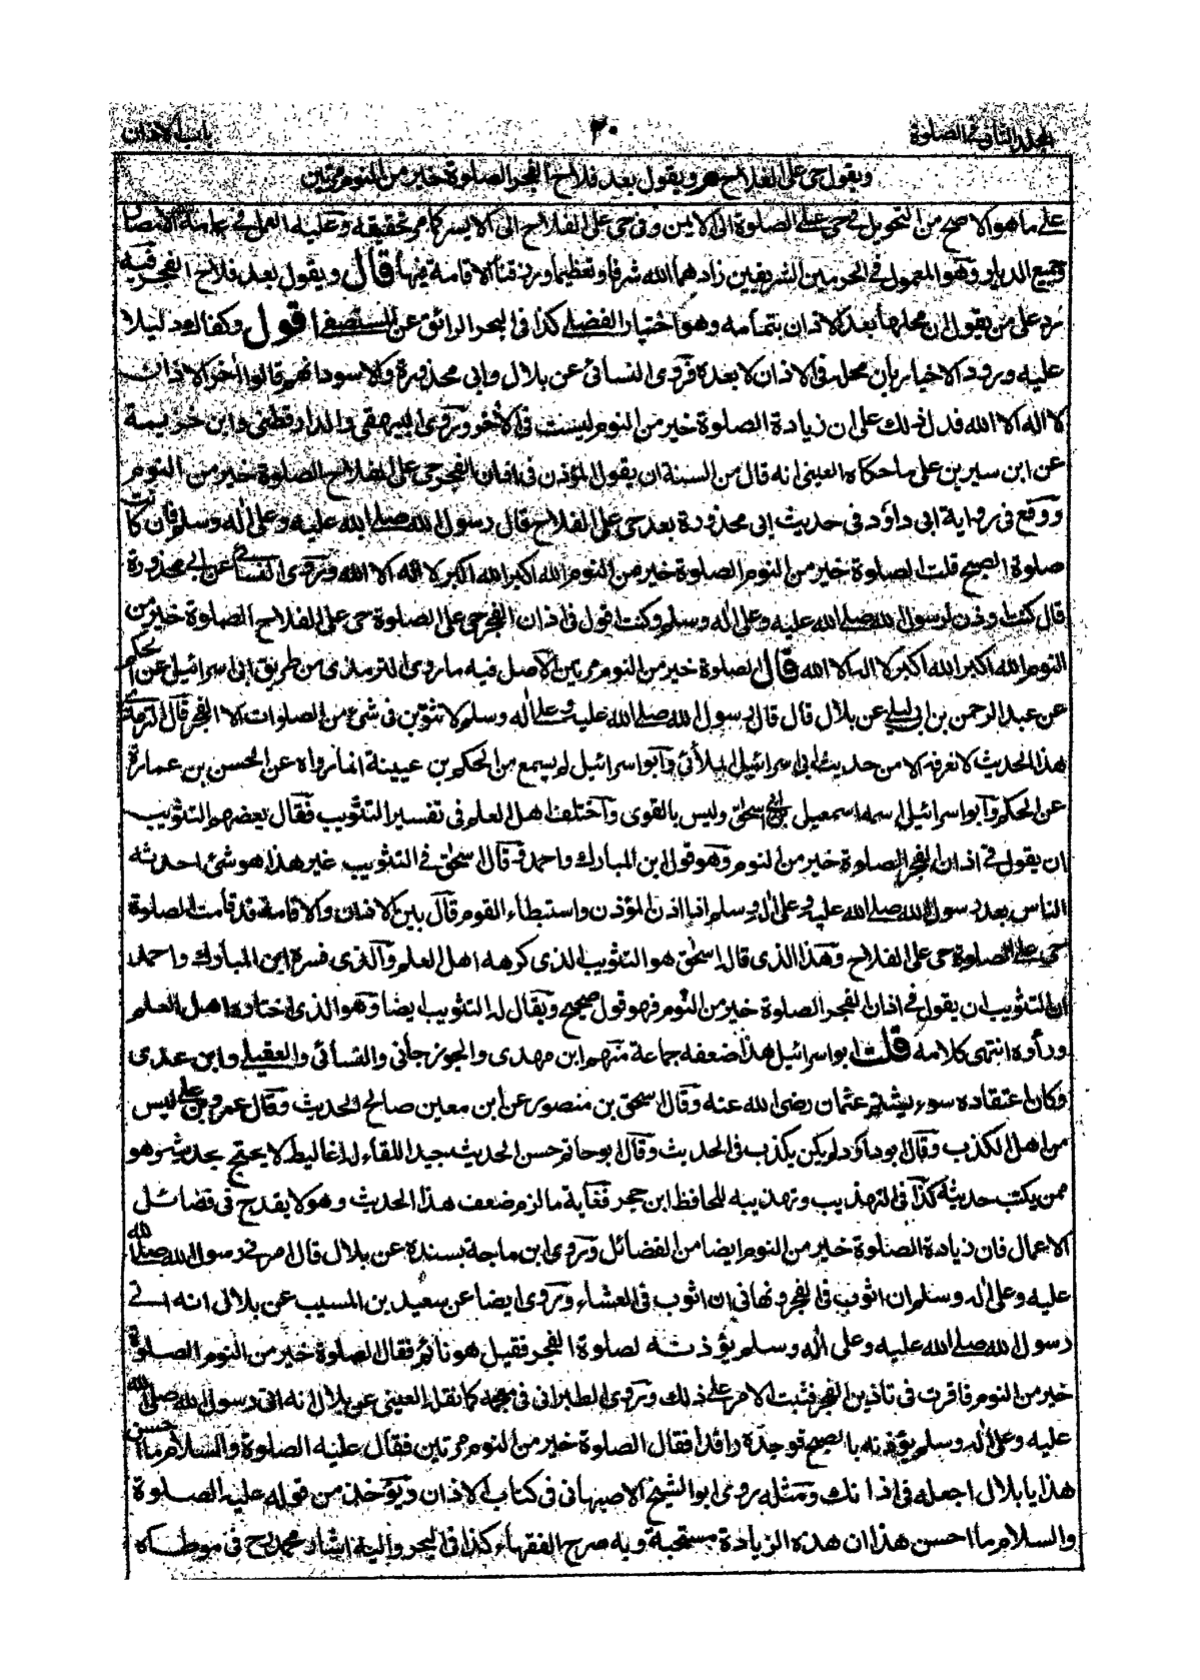 المجلد الثاني في الصلوة
٢٠
باب الاذان
ويقول حي على الفلاح ويقول بعد فلاح الفجر الصلوة خير من النوم مرتين
على ما هو الاصح من التحويل في حي على الصلوة الى الايمن وفي حي على الفلاح الى الايسر كما مر تحقيقه وعليه العمل في عامة الامصار
وجميع الديار وهو المعمول في الحرمين الشريفين زادهما الله شرفا وتعظيما ورزقنا الاقامة فيها قال ويقول بعد فلاح الفجر فيه
رد على من يقول ان محلها بعد الاذان بتمامه وهو اختيار الفضلي كذا في البحر الرائق عن المستصفى اقول وكفاك دليلا
عليه ورود الاخبار بان محله في الاذان لا بعده فروى النسائى عن بلال وابي محذورة والاسود انهم قالوا آخر الاذان
لا اله الا الله فدل ذلك على ان زيادة الصلوة خير من النوم ليست في الآخر وروى البيهقي والدار قطني وابن خزيمة
عن ابن سيرين على ما حكاه العيني انه قال من السنة ان يقول المؤذن في اذان الفجر حي على الفلاح الصلوة خير من النوم
ووقع في رواية ابي داؤد في حديث ابي محذورة بعد حي على الفلاح قال رسول الله صلى الله عليه وعلى آله وسلم فان كانت
صلوة الصبح قلت الصلوة خير من النوم الصلوة خير من النوم الله اكبر الله اكبر لا اله الا الله وروى النسائي عن ابي محذورة
قال كنت اوذن لرسول الله صلى الله عليه وعلى آله وسلم وكنت اقول في اذان الفجر حي على الصلوة حي على الفلاح الصلوة خير من
النوم الله اكبر الله اكبر لا اله الا الله قال الصلوة خير من النوم مرتين الاصل فيه ما روى الترمذي من طريق ابي اسرائيل عن الحكم
عن عبد الرحمن بن ابي ليلى عن بلال قال قال رسول الله صلى الله عليه وعلى آله وسلم لا تثوبن في شئ من الصلوات الا الفجر قال الترمذي
هذا الحديث لا نعرفه الا من حديث ابي اسرائيل الملائي وابو اسرائيل لم يسمع من الحكم بن عيينة انما رواه عن الحسن بن عمارة
عن الحكم وابو اسرائيل اسمه اسمعيل بن ابي اسحق وليس بالقوى واختلف اهل العلم في تفسير التثويب فقال بعضهم التثويب
ان يقول في اذان الفجر الصلوة خير من النوم وهو قول ابن المبارك واحمد وقال اسحق في التثويب غير هذا هو شئ احدثه
الناس بعد رسول الله صلى الله عليه وعلى آله وسلم اذا اذن المؤذن واستبطاء القوم قال بين الاذان والاقامة قد قامت الصلوة
حي على الصلوة حي على الفلاح وهذا الذي قال اسحق هو التثويب الذي كرهه اهل العلم والذي فسره ابن المبارك واحمد
ان التثويب ان يقول في اذان الفجر الصلوة خير من النوم فهو قول صحيح ويقال له التثويب ايضا وهو الذي اختاره اهل العلم
ورأوه انتهى كلامه قلت ابو اسرائيل هذا ضعفه جماعة منهم ابن مهدى والجوزجاني والنسائى والعقيلي وابن عدى
وكان اعتقاده سوء يشتم عثمان رضى الله عنه وقال اسحق بن منصور عن ابن معين صالح الحديث وقال عمرو بن علي ليس
من اهل الكذب وقال ابو داؤد لم يكن يكذب في الحديث وقال ابو حاتم حسن الحديث جيد اللقاء له اغاليط لا يحتج بحديثه وهو
ممن يكتب حديثه كذا في التهذيب وتهذيبه للحافظ ابن حجر فغاية ما لزم ضعف هذا الحديث وهو لا يقدح في فضائل
الاعمال فان زيادة الصلوة خير من النوم ايضا من الفضائل وروى ابن ماجة بسنده عن بلال قال امرني رسول الله صلى الله
عليه وعلى آله وسلم ان اثوب في الفجر ونهاني ان اثوب في العشاء وروى ايضا عن سعيد بن المسيب عن بلال انه اتى
رسول الله صلى الله عليه وعلى آله وسلم يؤذنه لصلوة الفجر فقيل هو نائم فقال الصلوة خير من النوم الصلوة
خير من النوم فاقرت في تاذين الفجر فثبت الامر على ذلك وروى الطبراني في معجمه كما نقله العيني عن بلال انه اتى رسول الله صلى الله
عليه وعلى آله وسلم يؤذنه بالصبح فوجده راقدا فقال الصلوة خير من النوم مرتين فقال عليه الصلوة والسلام ما احسن
هذا يا بلال اجعله في اذانك ومثله روى ابو الشيخ الاصبهاني في كتاب الاذان ويؤخذ من قوله عليه الصلوة
والسلام ما احسن هذا ان هذه الزيادة مستحبة وبه صرح الفقهاء كذا في البحر واليه اشار محمد رح في موطاه